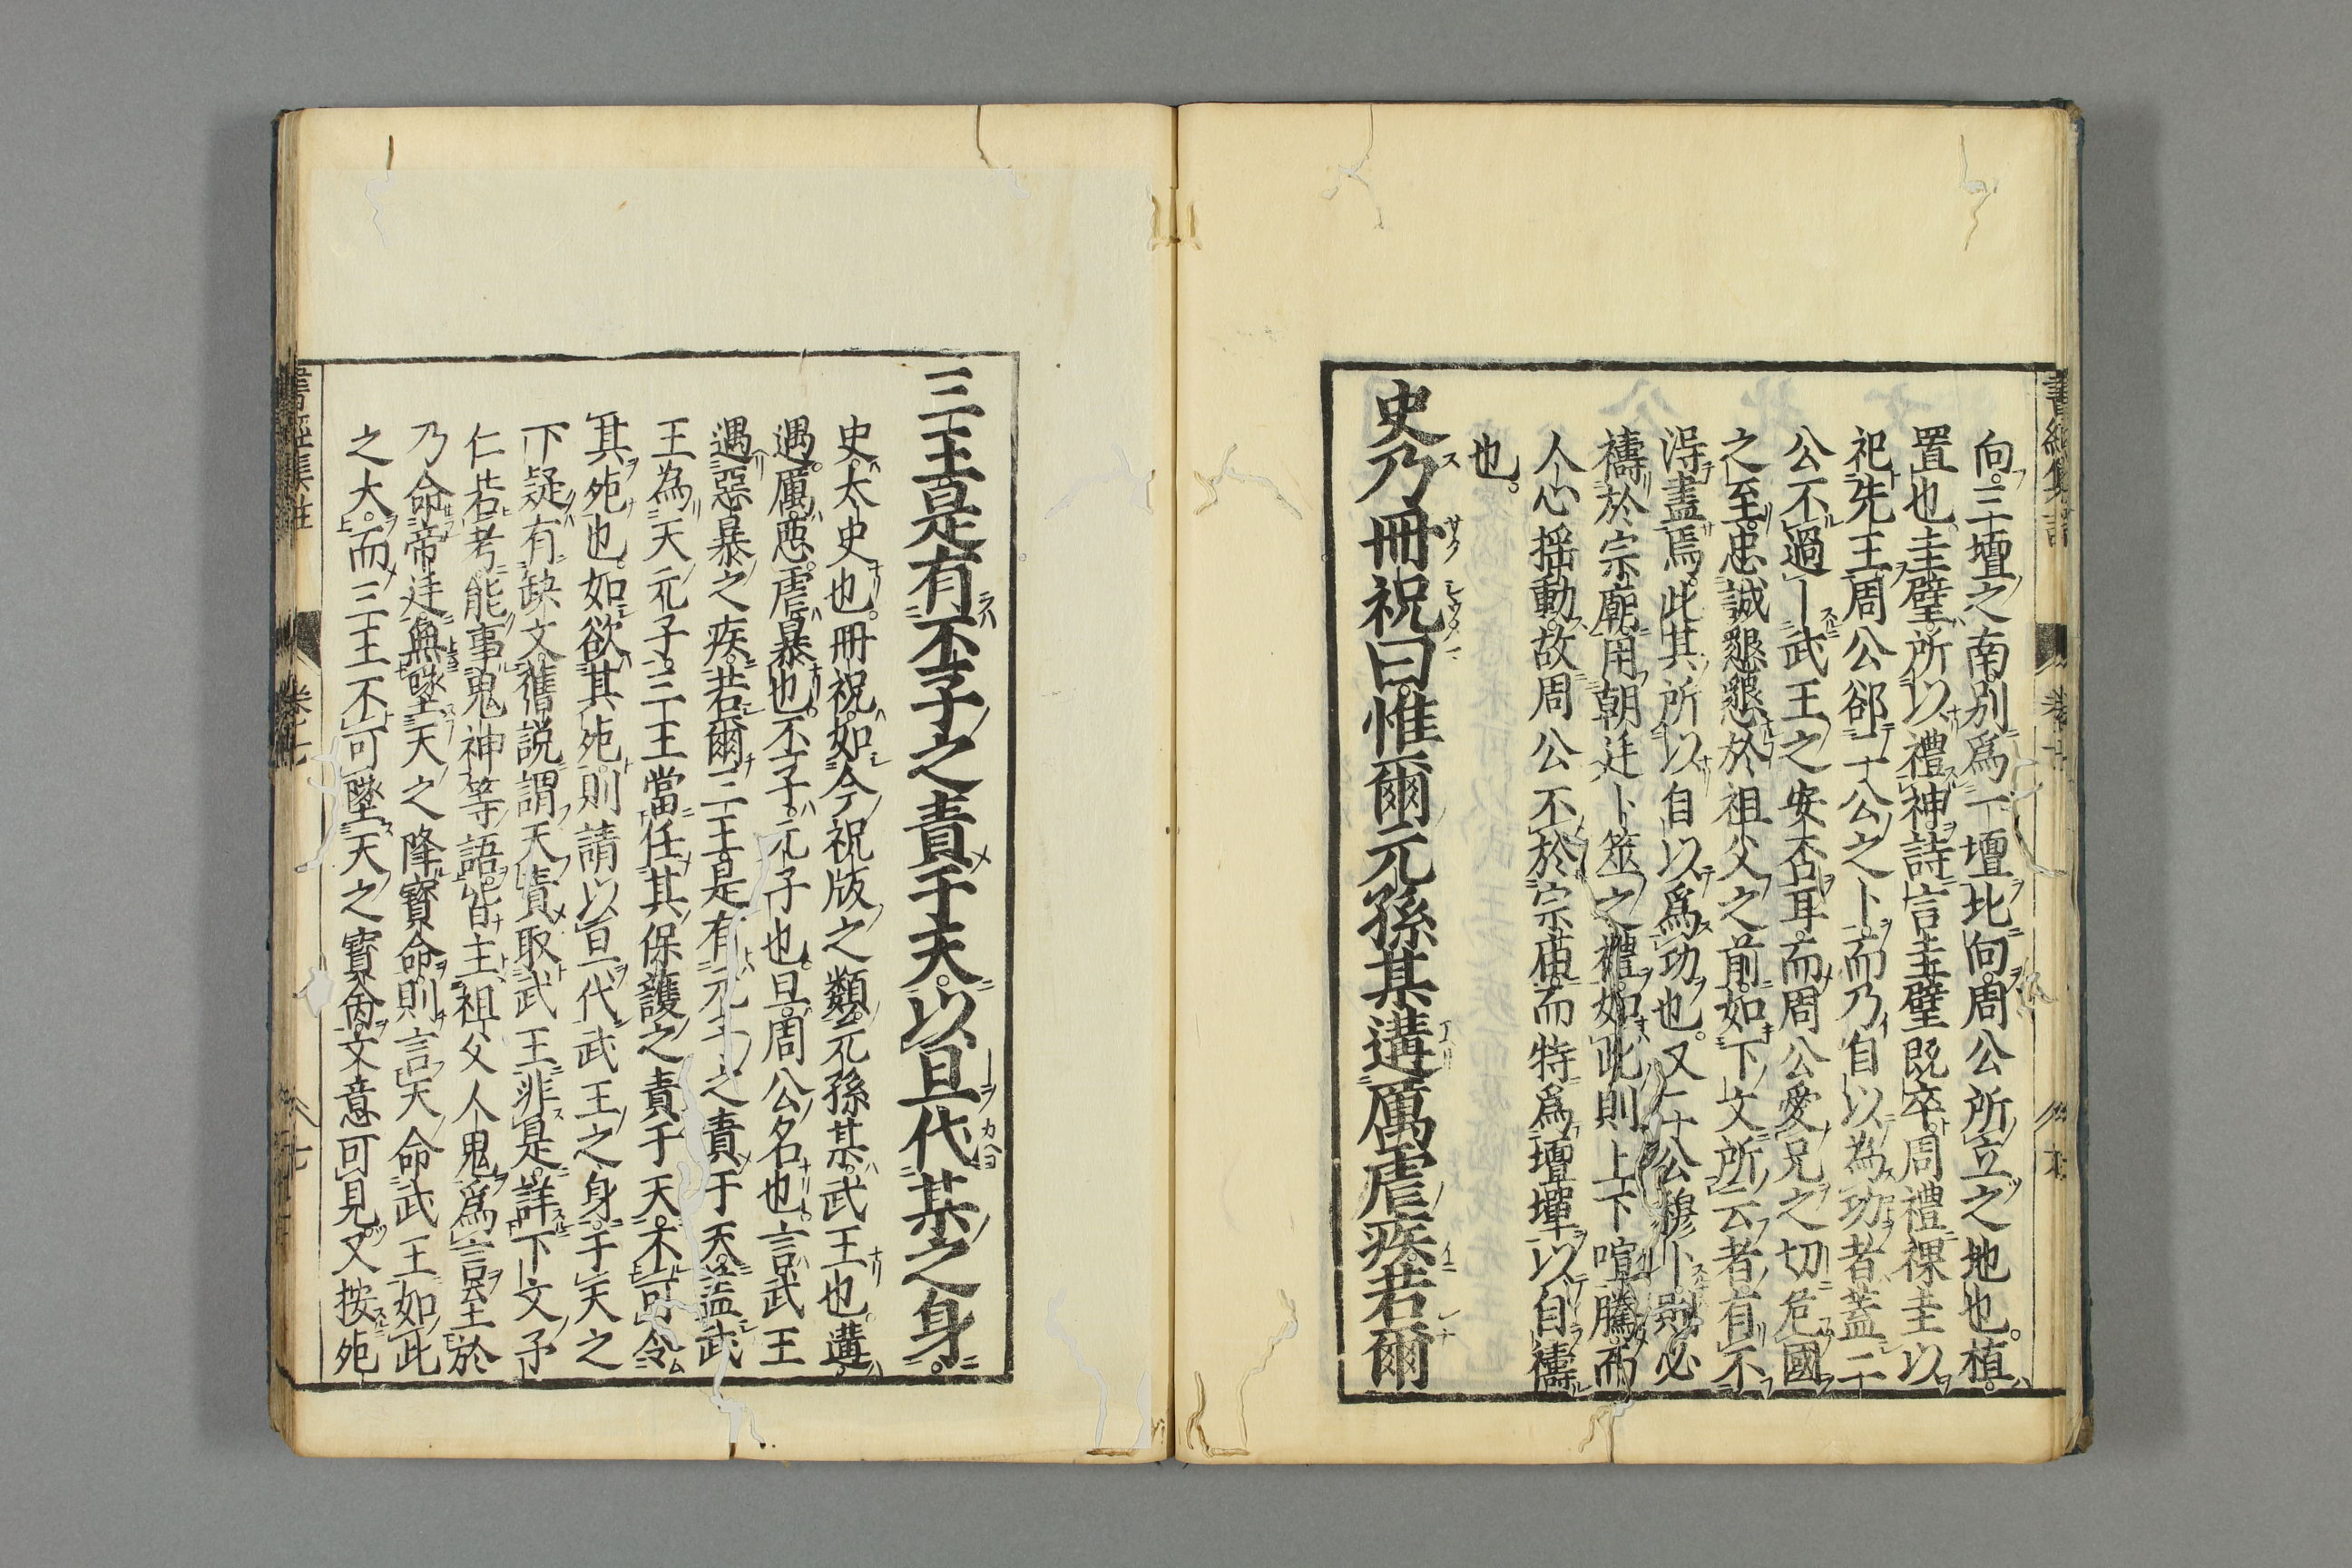 向三壇之南別爲一壇北向周公所立之地也植
置也圭璧所以禮神詩言圭璧既卒周禮祼圭以
祀先王周公郤二公之卜而乃自以為功者蓋二
公不過卜武王之安否耳而周公愛兄之切危國
之至忠誠懇懇於祖父之前如下文所云者有不
得盡焉此其所以自以爲功也又二公穆卜則必
禱於宗廟用朝廷卜筮之禮如此則上下喧騰而
人心揺動故周公不於宗庙而特爲壇墠以自禱
也
史乃冊祝曰惟爾元孫某遘厲虐疾若爾
三王是有丕子之責于天以旦代某之身
史太史也冊祝如今祝版之類元孫某武王也遘
遇厲惡虐暴也丕子元子也旦周公名也言武王
遇惡暴之疾若爾三王是有元子之責于天蓋武
王為天元子三王當任其保護之責于天不可令
其死也如欲其死則請以旦代武王之身于天之
下疑有缺文舊説謂天責取武王非是詳下文予
仁若考能事鬼神等語皆主祖父人鬼爲言至於
乃命帝廷無墜天之降寶命則言天命武王如此
之大而三王不可墜天之寶命文意可見又按死